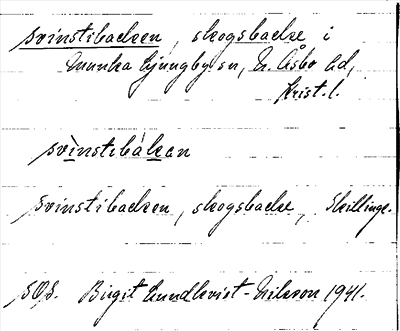 svinstibacken, skogsbacke i
Munka Ljungby sn, N. Åsbo hd,
Krist. l.
svinstibákan
svinstibacken, skogsbacke, Skillinge.
SOS. Birgit Lundkvist-Nilsson 1941.